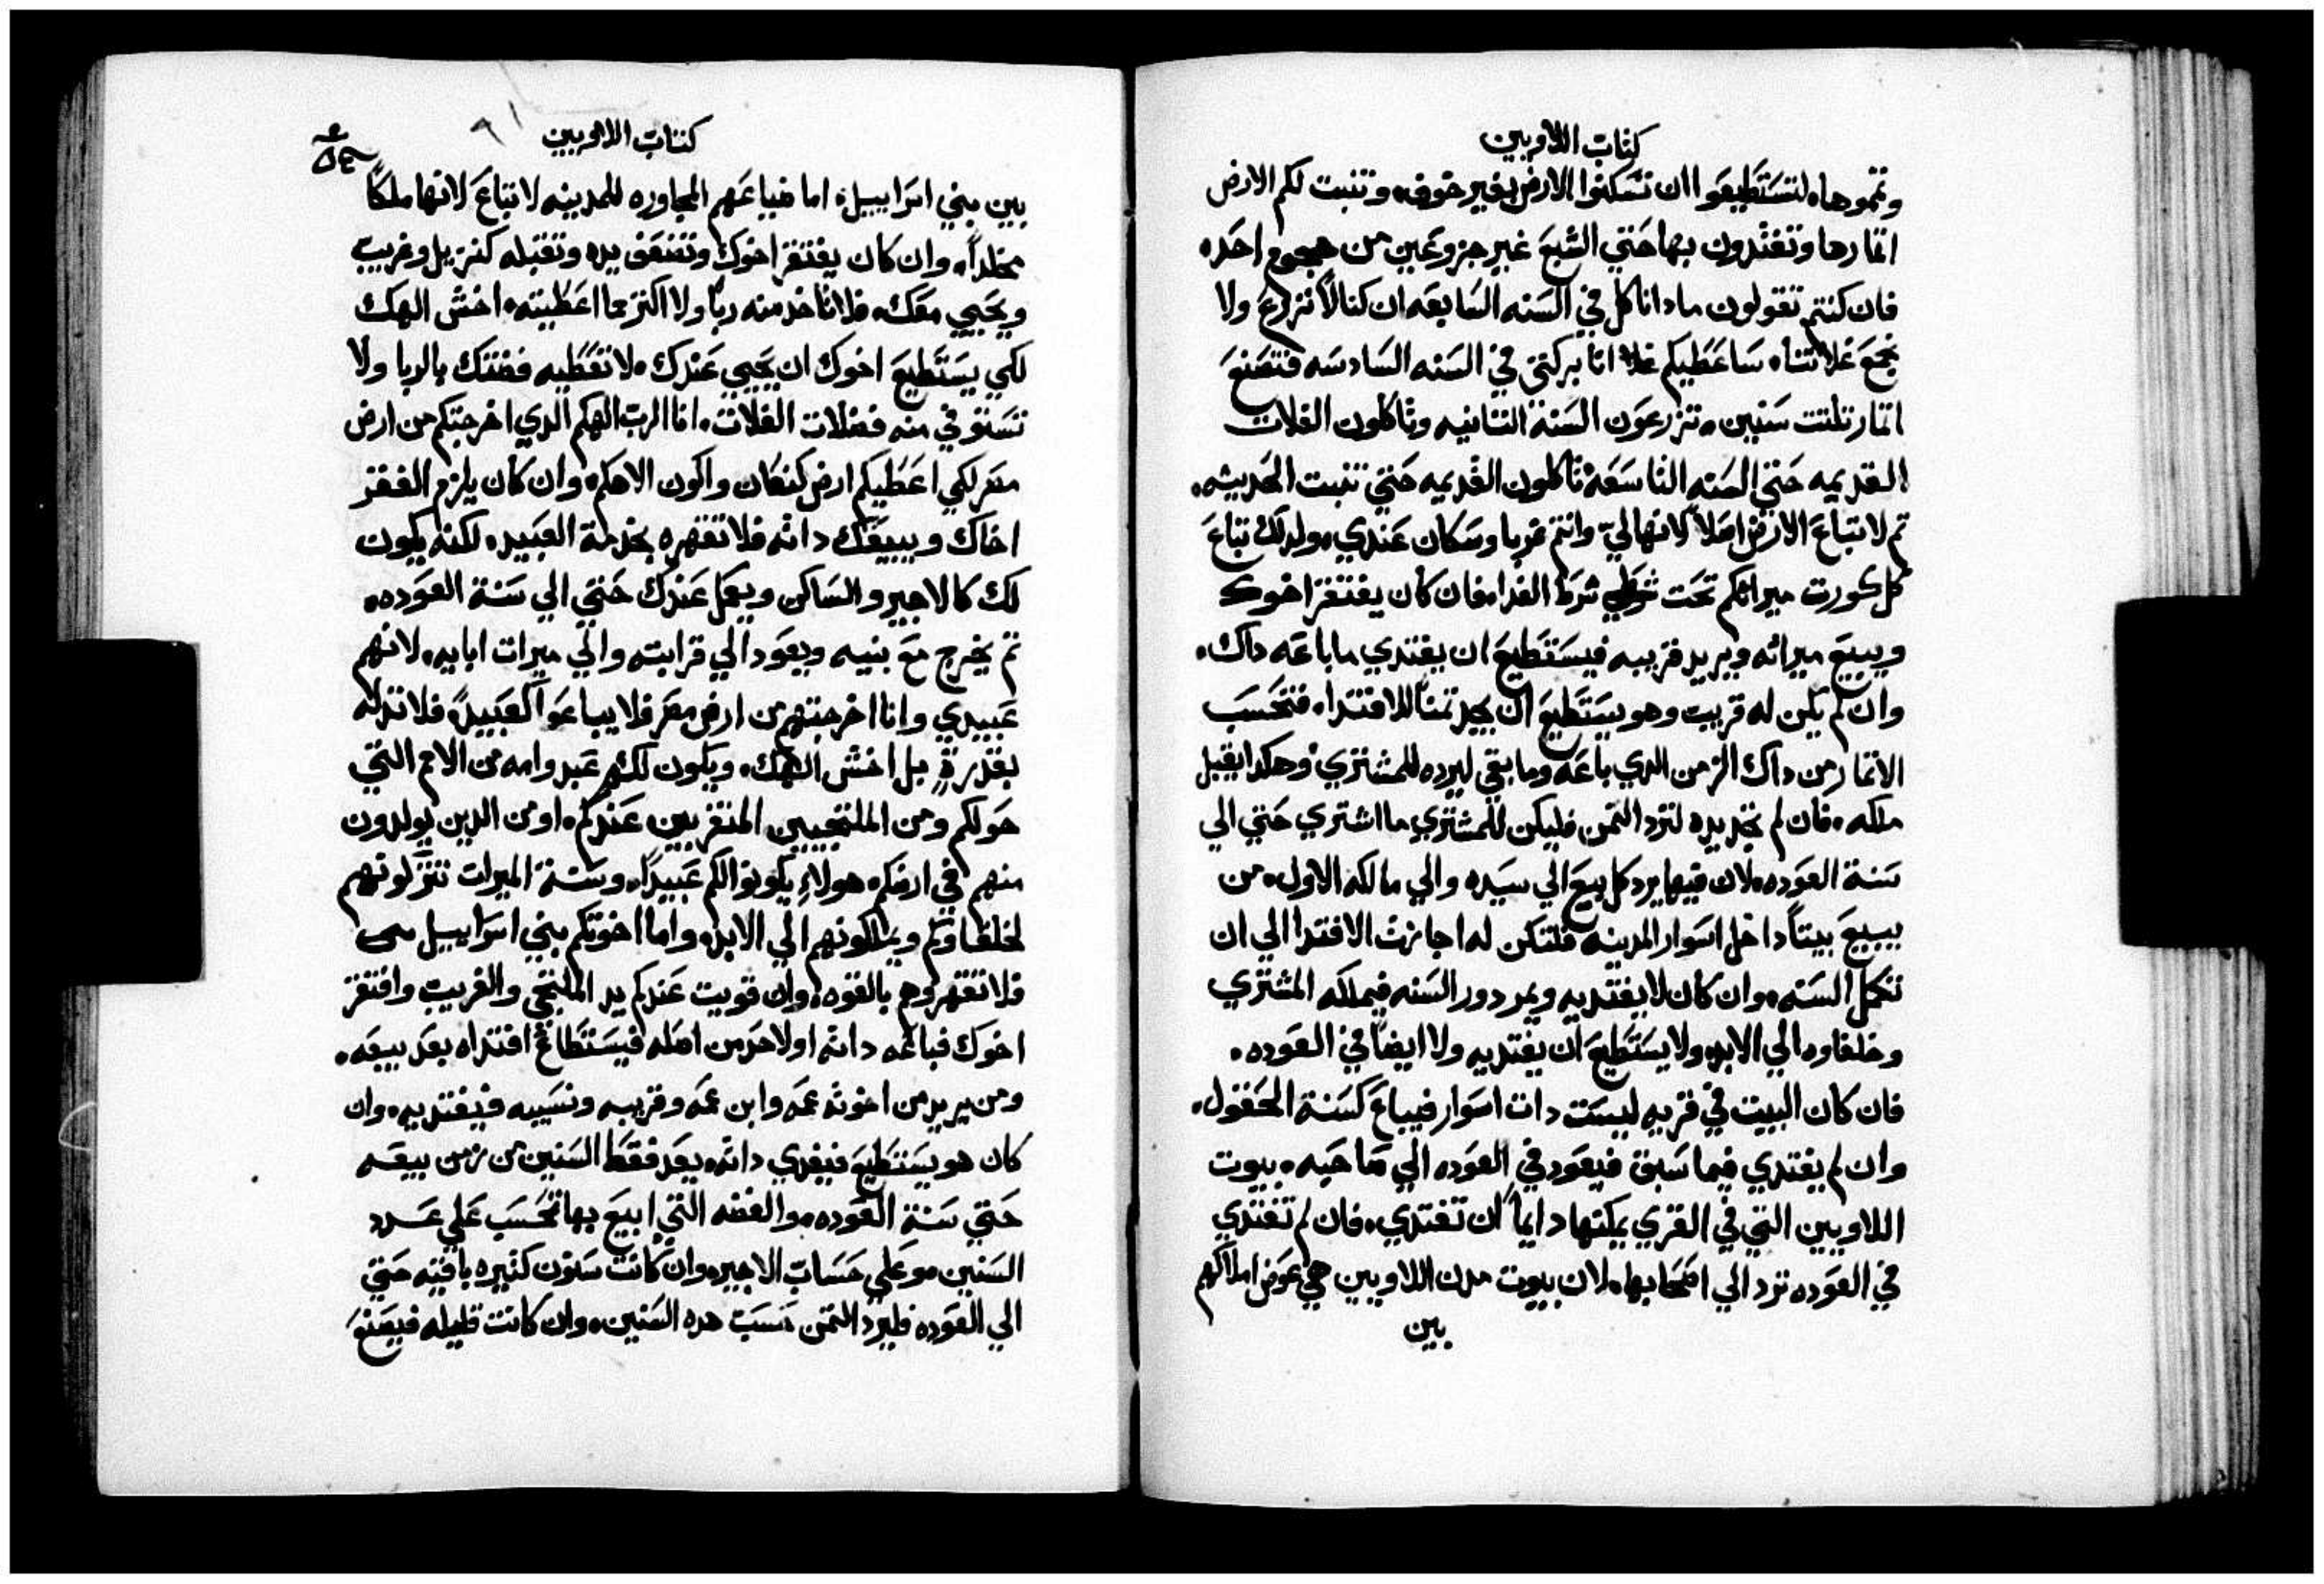 كتاب اللاويين
وتتموها. لتستطيعوا ان تسكنوا الارض بغير خوف. وتنبت لكم الارض
اتمارها وتغتدون بها حتي الشبع غير جزوعين من هجوع احد.
فان كنتم تقولون مادا ناكل في السنه السابعه ان كنا لا نزرع ولا
نجمع غلاتنا. ساعطيكم غلا انا بركتي في السنه السادسه فتصنع
اتمار تلتت سنين. تزرعون السنة التانيه وتاكلون الغلات
القديمه حتي السنه التاسعة تاكلون القديمه حتي تنبت الحديثه.
تم لا تباع الارض اصلاً لانها لي وانتم غربا وسكان عندي. ولدلك تباع
كل كورت ميراتكم تحت شرط الفدا. فان كان يفتقر اخوك
ويبيع ميراته ويريد قريبه فيستطيع ان يفتدي ما باعه داك.
وان لم يكن له قريب وهو يستطيع ان يجد تمناً للافتدا. فتحسب
الاتمار من داك الزمن الدي باعه وما بقي ليرده للمشتري وهكدا يقبل
ملكه. فان لم تجد يده لترد التمن فليكن للمشتري ما اشتري حتي الي
سنة العوده. لان فيها يرد كل بيع الي سيده والي مالكه الاول. من
يبيع بيتاً داخل اسوار المدينه فلتكن له اجازة الافتدا الي ان
تكمل السنه. وان كان لا يفتديه ويمر دور السنه فيملكه المشتري
وخلفاوه الي الابد. ولا يستطيع ان يفتديه ولا ايضاً في العوده.
فان كان البيت في قريه ليست دات اسوار فيباع كسنة الحقول.
وان لم يفتدي فيما سبق فيعود في العوده الي صاحبه. بيوت
اللاويين التي في القري يمكنها دايماً ان تفتدي. فان لم تفتدي
في العوده ترد الي اصحابها. لان بيوت مدن اللاويين هي عوض املاكهم
بين
كتاب اللاويين
بين بني اسراييل. اما ضياعهم المجاوره للمدينه لا تباع لانها ملكاً
مخلداً. وان كان يفتقر اخوك وتضعف يده وتقبله كنزيل وغريب
ويحيي معك. فلا تاخد منه رباً ولا اكتر مما اعطيته. اخش الهك
لكي يستطيع اخوك ان يحيي عندك. لا تعطيه فضتك بالربا ولا
تستوفي منه فضلات الغلات. انا الرب الهكم الدي اخرجتكم من ارض
مصر لكي اعطيكم ارض كنعان واكون الاهكم. وان كان يلزم الفقر
اخاك ويبيعك داته فلا تقهره بخدمة العبيد. لكنه يكون
لك كالاجير والساكن ويعمل عندك حتي الي سنة العوده.
تم يخرج مع بنيه ويعود الي قرابته والي ميرات ابايه. لانهم
عبيدي وانا اخرجتهم من ارض مصر فلا يباعوا كعبيد. فلا تدله
بقدرةٍ بل اخش الهك. ويكون لكم عبد وامه من الامم التي
حولكم ومن الملتجيين المتغربين عندكم. او من الدين يولدون
منهم في ارضكم. هولاءِ يكونوا لكم عبيداً. وسنة الميرات تتركونهم
لخلفاوكم ويملكونهم الي الابد. واما اخوتكم بني اسراييل
فلا تقهروهم بالقوه. وان قويت عندكم يد الملتجي والغريب وافتقر
اخوك فباعه داته او لاحد من اصله فيستطاع افتداه بعد بيعه.
ومن يريد من اخوته عمه وابن عمه وقريبه ونسيبه فيفتديه. وان
كان هو يستطيع فيفدي داته. يعد فقط السنين من زمن بيعه
حتي سنة العوده. والفضه التي ابيع بها تحسب علي عدد
السنين. وعلي حساب الاجير. وان كانت سنون كتيره باقيه حتي
الي العوده فليرد التمن حسب هده السنين. وان كانت قليله فيصنع